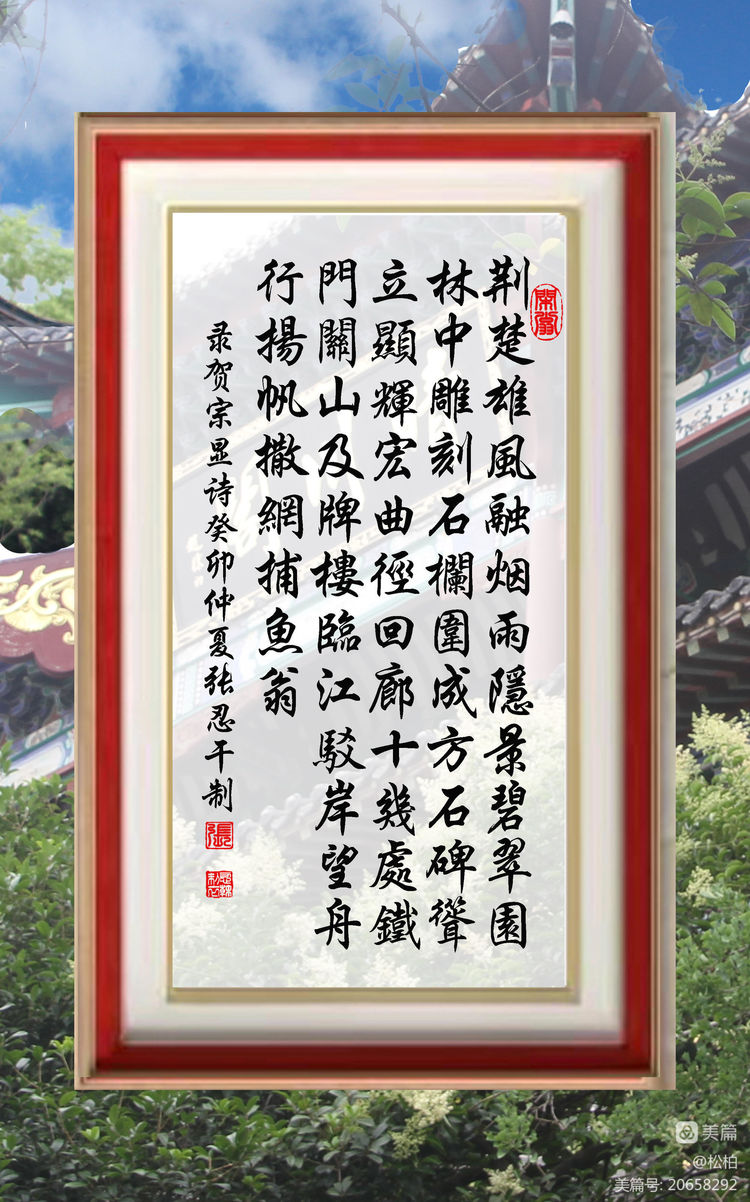 荆楚雄風融烟雨隱景碧翠園
林中雕刻石欄圍成方石碑聳
立顯輝宏曲徑回廊十幾處鐵
門關山及牌樓臨江駁岸望舟
行揚帆撒網捕魚翁
录贺宗显诗癸卯仲夏张忍千制
張
美篇
@松柏
美篇号: 20658292